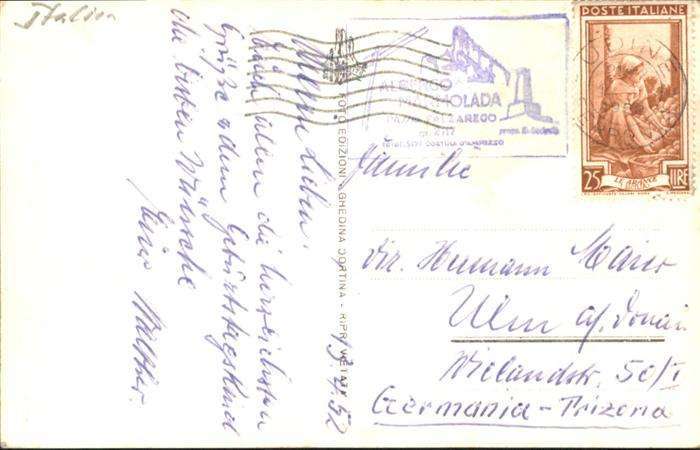 Italien
Meine Lieben.
Euch allen die herzlichsten
Grüße u dem Geburtstagskind
die besten Wünsche
Euer Walther.
13.4.52
FOTO EDIZIONI GHEDINA CORTINA - RIPR. VIETATA
ALBERGO
MARMOLADA
PASSO FALZAREGO
CORTINA D'AMPEZZO
UDINE
POSTE ITALIANE
LE ARANCE
25 LIRE
Familie
Dir. Hermann Maier
Ulm a/. Donau
Wielandstr. 50/I
Germania - Prizona